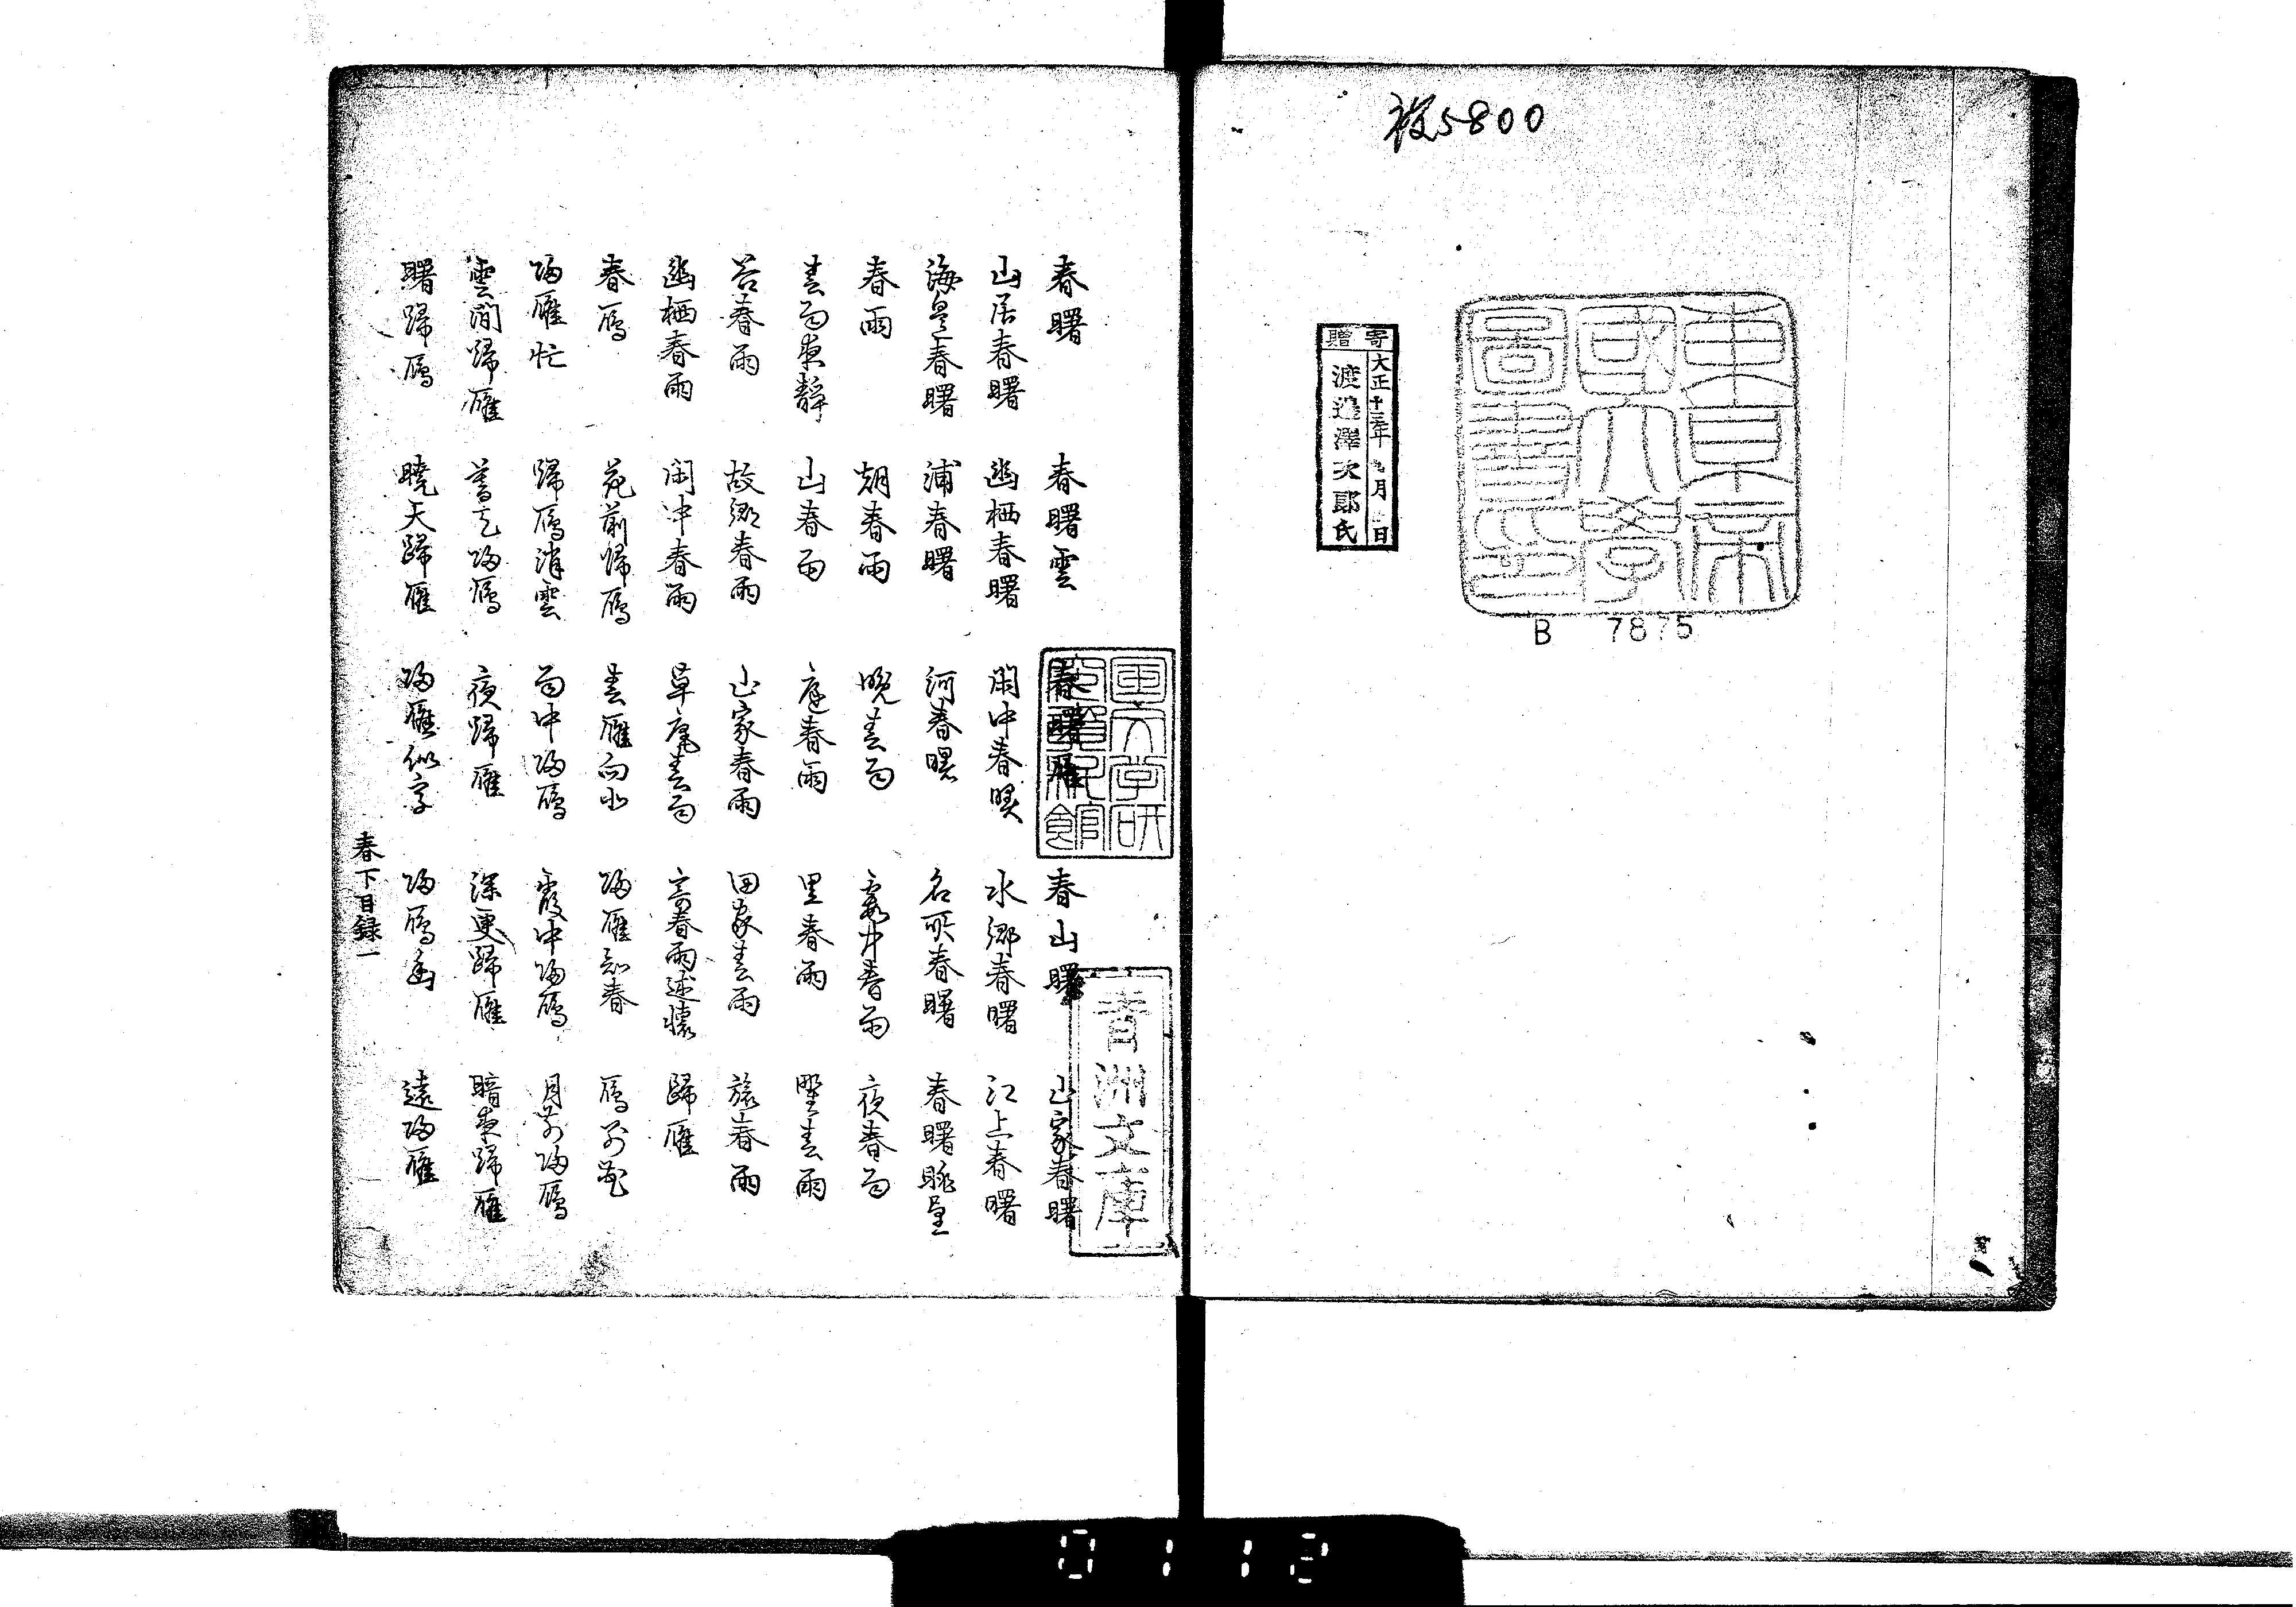 複5800
東京帝
國大學
圖書印
B 7875
寄贈
大正十三年 月 日
渡邊澤次郎氏
春曙 春曙雲 春曙雁 春山曙 山家春曙
山居春曙 幽栖春曙 閑中春曙 水郷春曙 江上春曙
海邊春曙 浦春曙 河春曙 名所春曙 春曙眺望
春雨 朝春雨 晩春雨 霞中春雨 夜春雨
春雨夜静 山春雨 庭春雨 里春雨 野春雨
谷春雨 故郷春雨 山家春雨 田家春雨 旅春雨
幽栖春雨 閑中春雨 草庵春雨 寄春雨述懐 歸雁
春雁 花前帰雁 春雁向北 帰雁知春 雁別花
帰雁忙 歸雁消雲 雨中帰雁 霞中帰雁 月前帰雁
雲間歸雁 暮天帰雁 夜歸雁 深更歸雁 暗夜歸雁
曙歸雁 暁天歸雁 帰雁似字 帰雁幽 遠帰雁
春下目録一
青洲文庫
国文学研
究資料館
0112